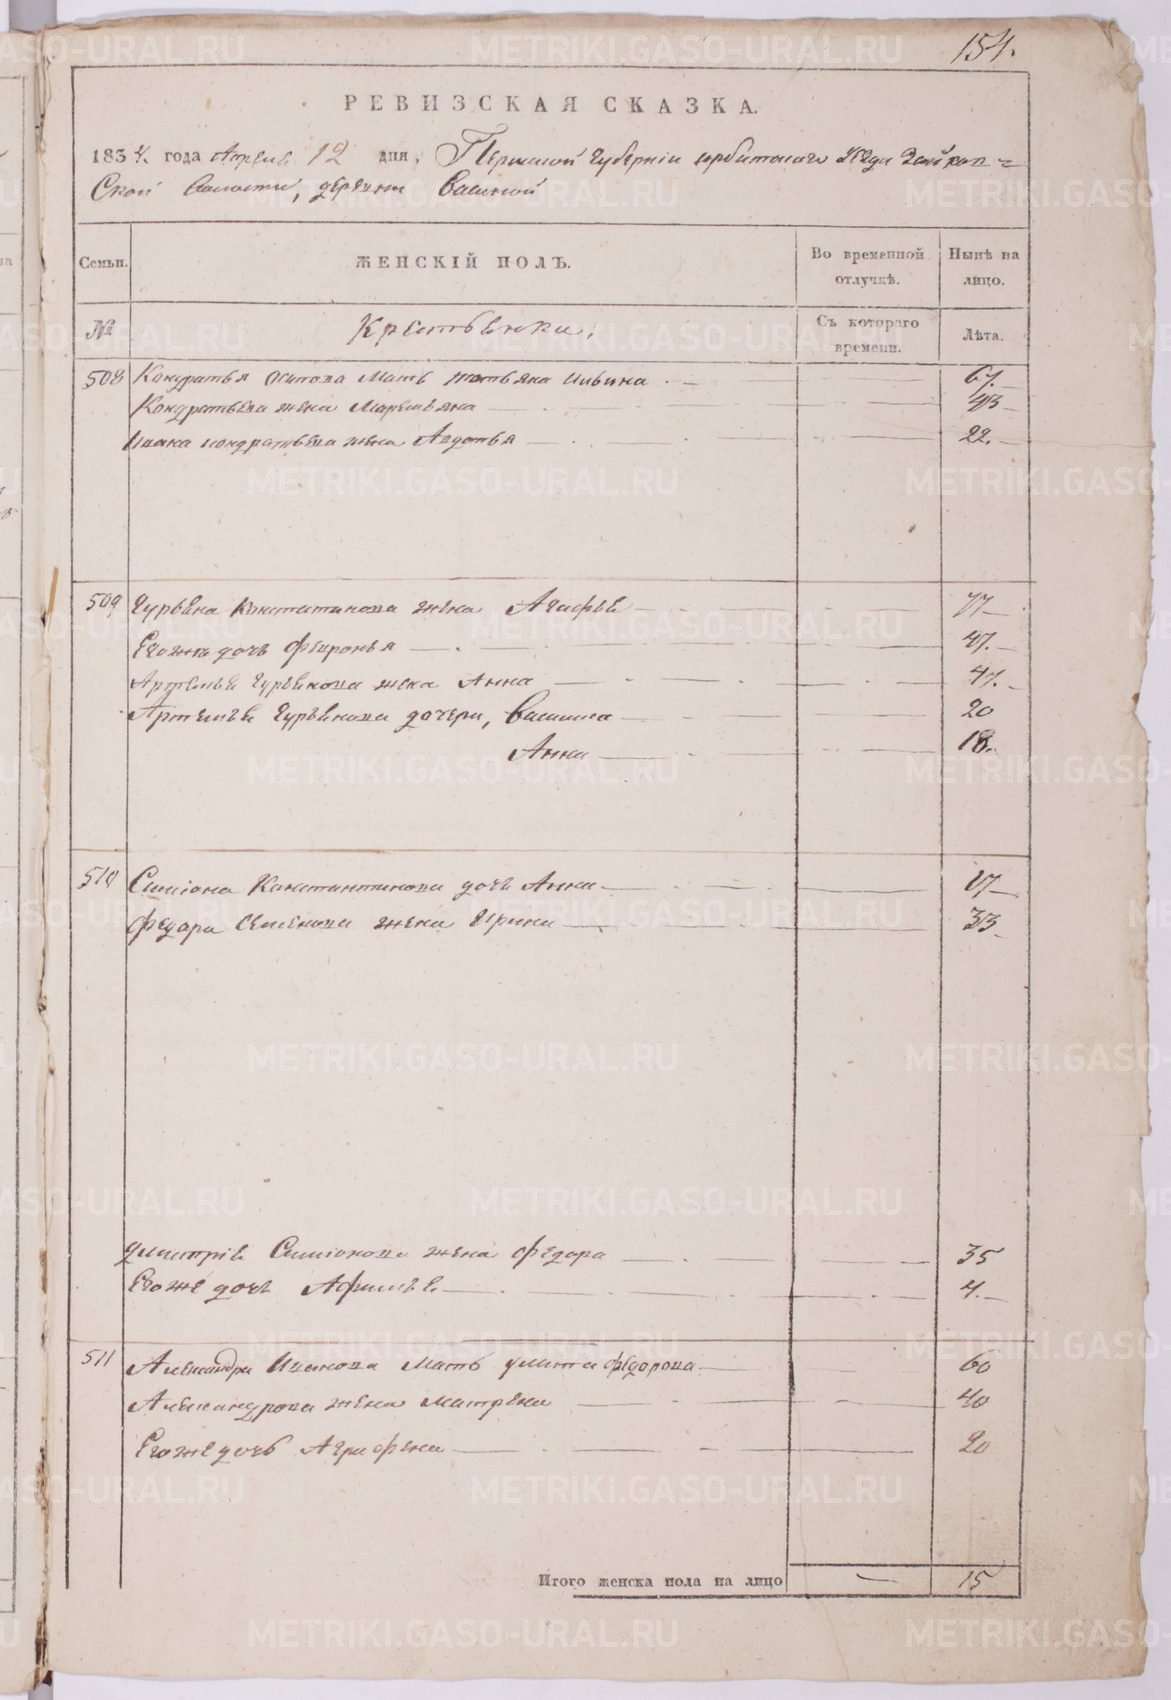 154.
РЕВИЗСКАЯ СКАЗКА.
1834 года Апреля 12 дня, Пермской губернiи ирбитскаго уезда Зайков=
ской волости, деревни Васиной
Семьи. ЖЕНСКІЙ ПОЛЪ. Во временной отлучкѣ. Нынѣ на лицо.
№ Крестьянки. Съ котораго времени. Лѣта.
508 Кондратья осипова мать татьяна ильина 67.
Кондратьева жена Маремьяна 43
кондратьева жена Авдотья 22.
509 Гурьяна Константинова жена Агафья 77
Егожъ дочь Февронья 47.
Артемья Гурьянова жена Анна 47.
Артемья Гурьянова дочери, Василиса 20
Анна 18.
510 Симiона Константинова дочь Анна 17
Федора Семенова жена Ирина 33
дмитрiя Симiонова жена федора 35
Егоже дочь Афимья 4.
511 Александра Иванова мать улита федорова 60
Александрова жена матрена 40
Егоже дочь Аграфена 20
Итого женска пола на лицо — 15
METRIKI.GASO-URAL.RU